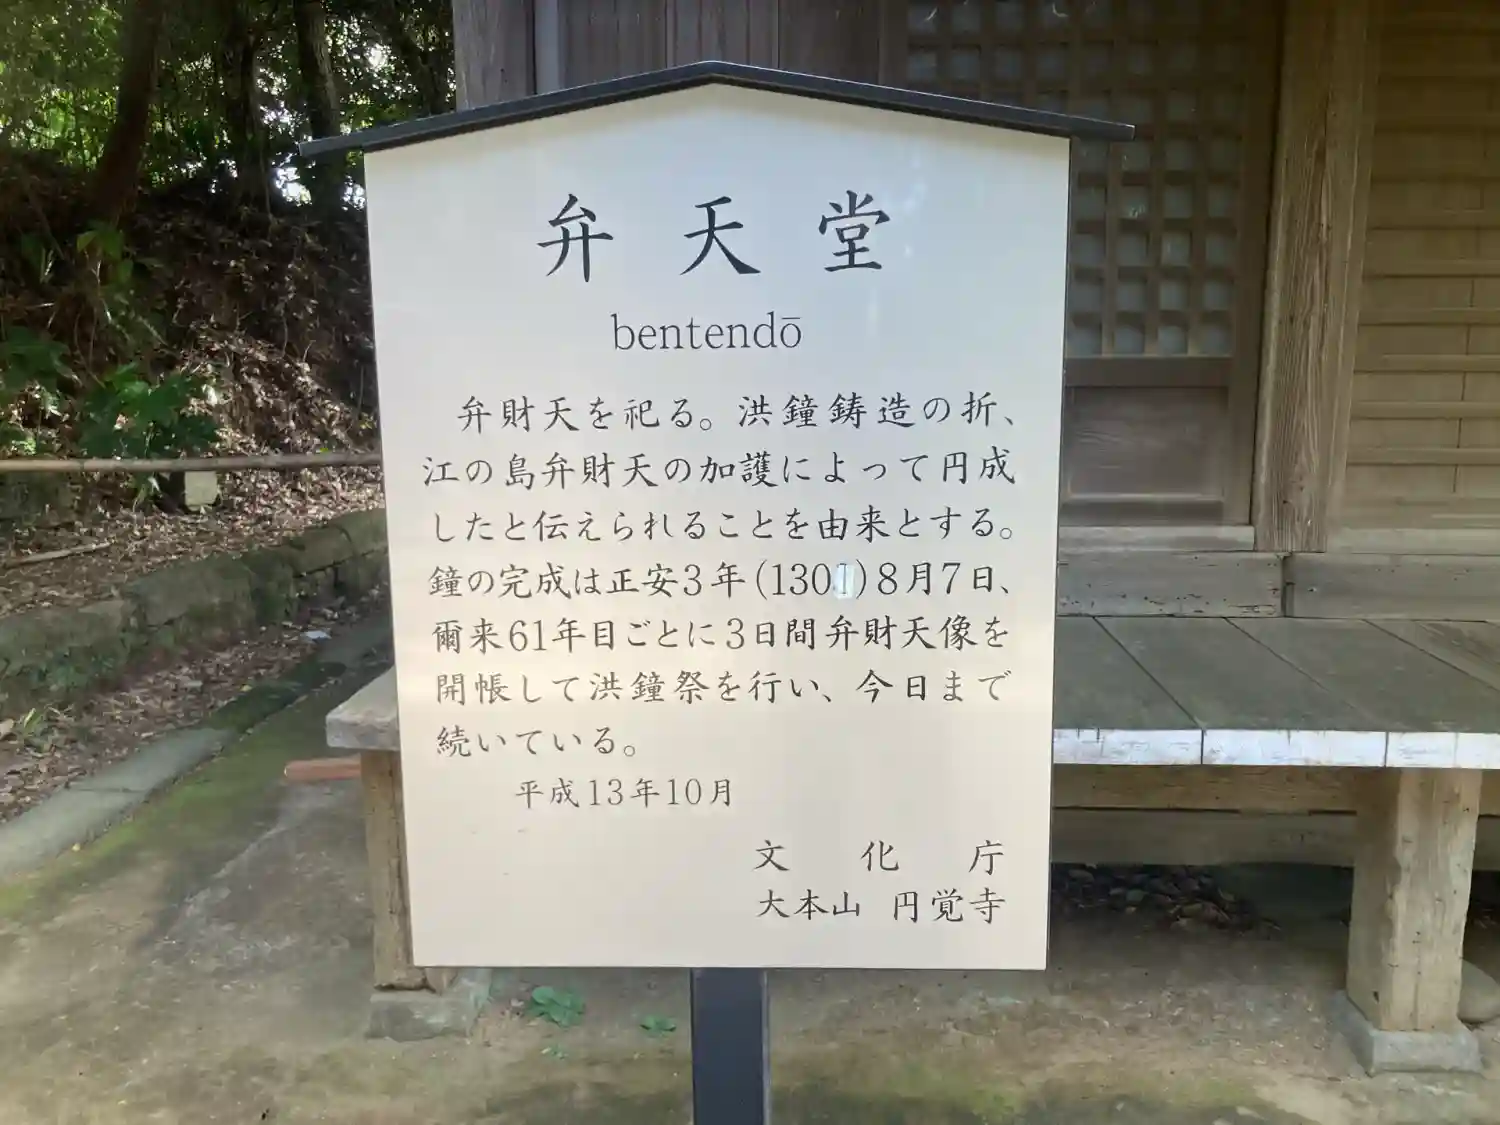 弁天堂
bentendō
弁財天を祀る。洪鐘鋳造の折、
江の島弁財天の加護によって円成
したと伝えられることを由来とする。
鐘の完成は正安3年(1301)8月7日、
爾来61年目ごとに3日間弁財天像を
開帳して洪鐘祭を行い、今日まで
続いている。
平成13年10月
文化庁
大本山 円覚寺